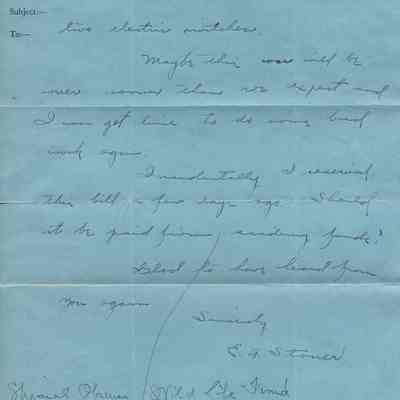 Subject:—
To:— two electric switches.
Maybe this war will be
over sooner than we expect and
I can get time to do some bird
work again.
Incidentally I received
this bill a few days ago. Should
it be paid from banding funds?
Glad to have heard from
you again
Sincerely
E. A. Stoner
Wild Life Fund